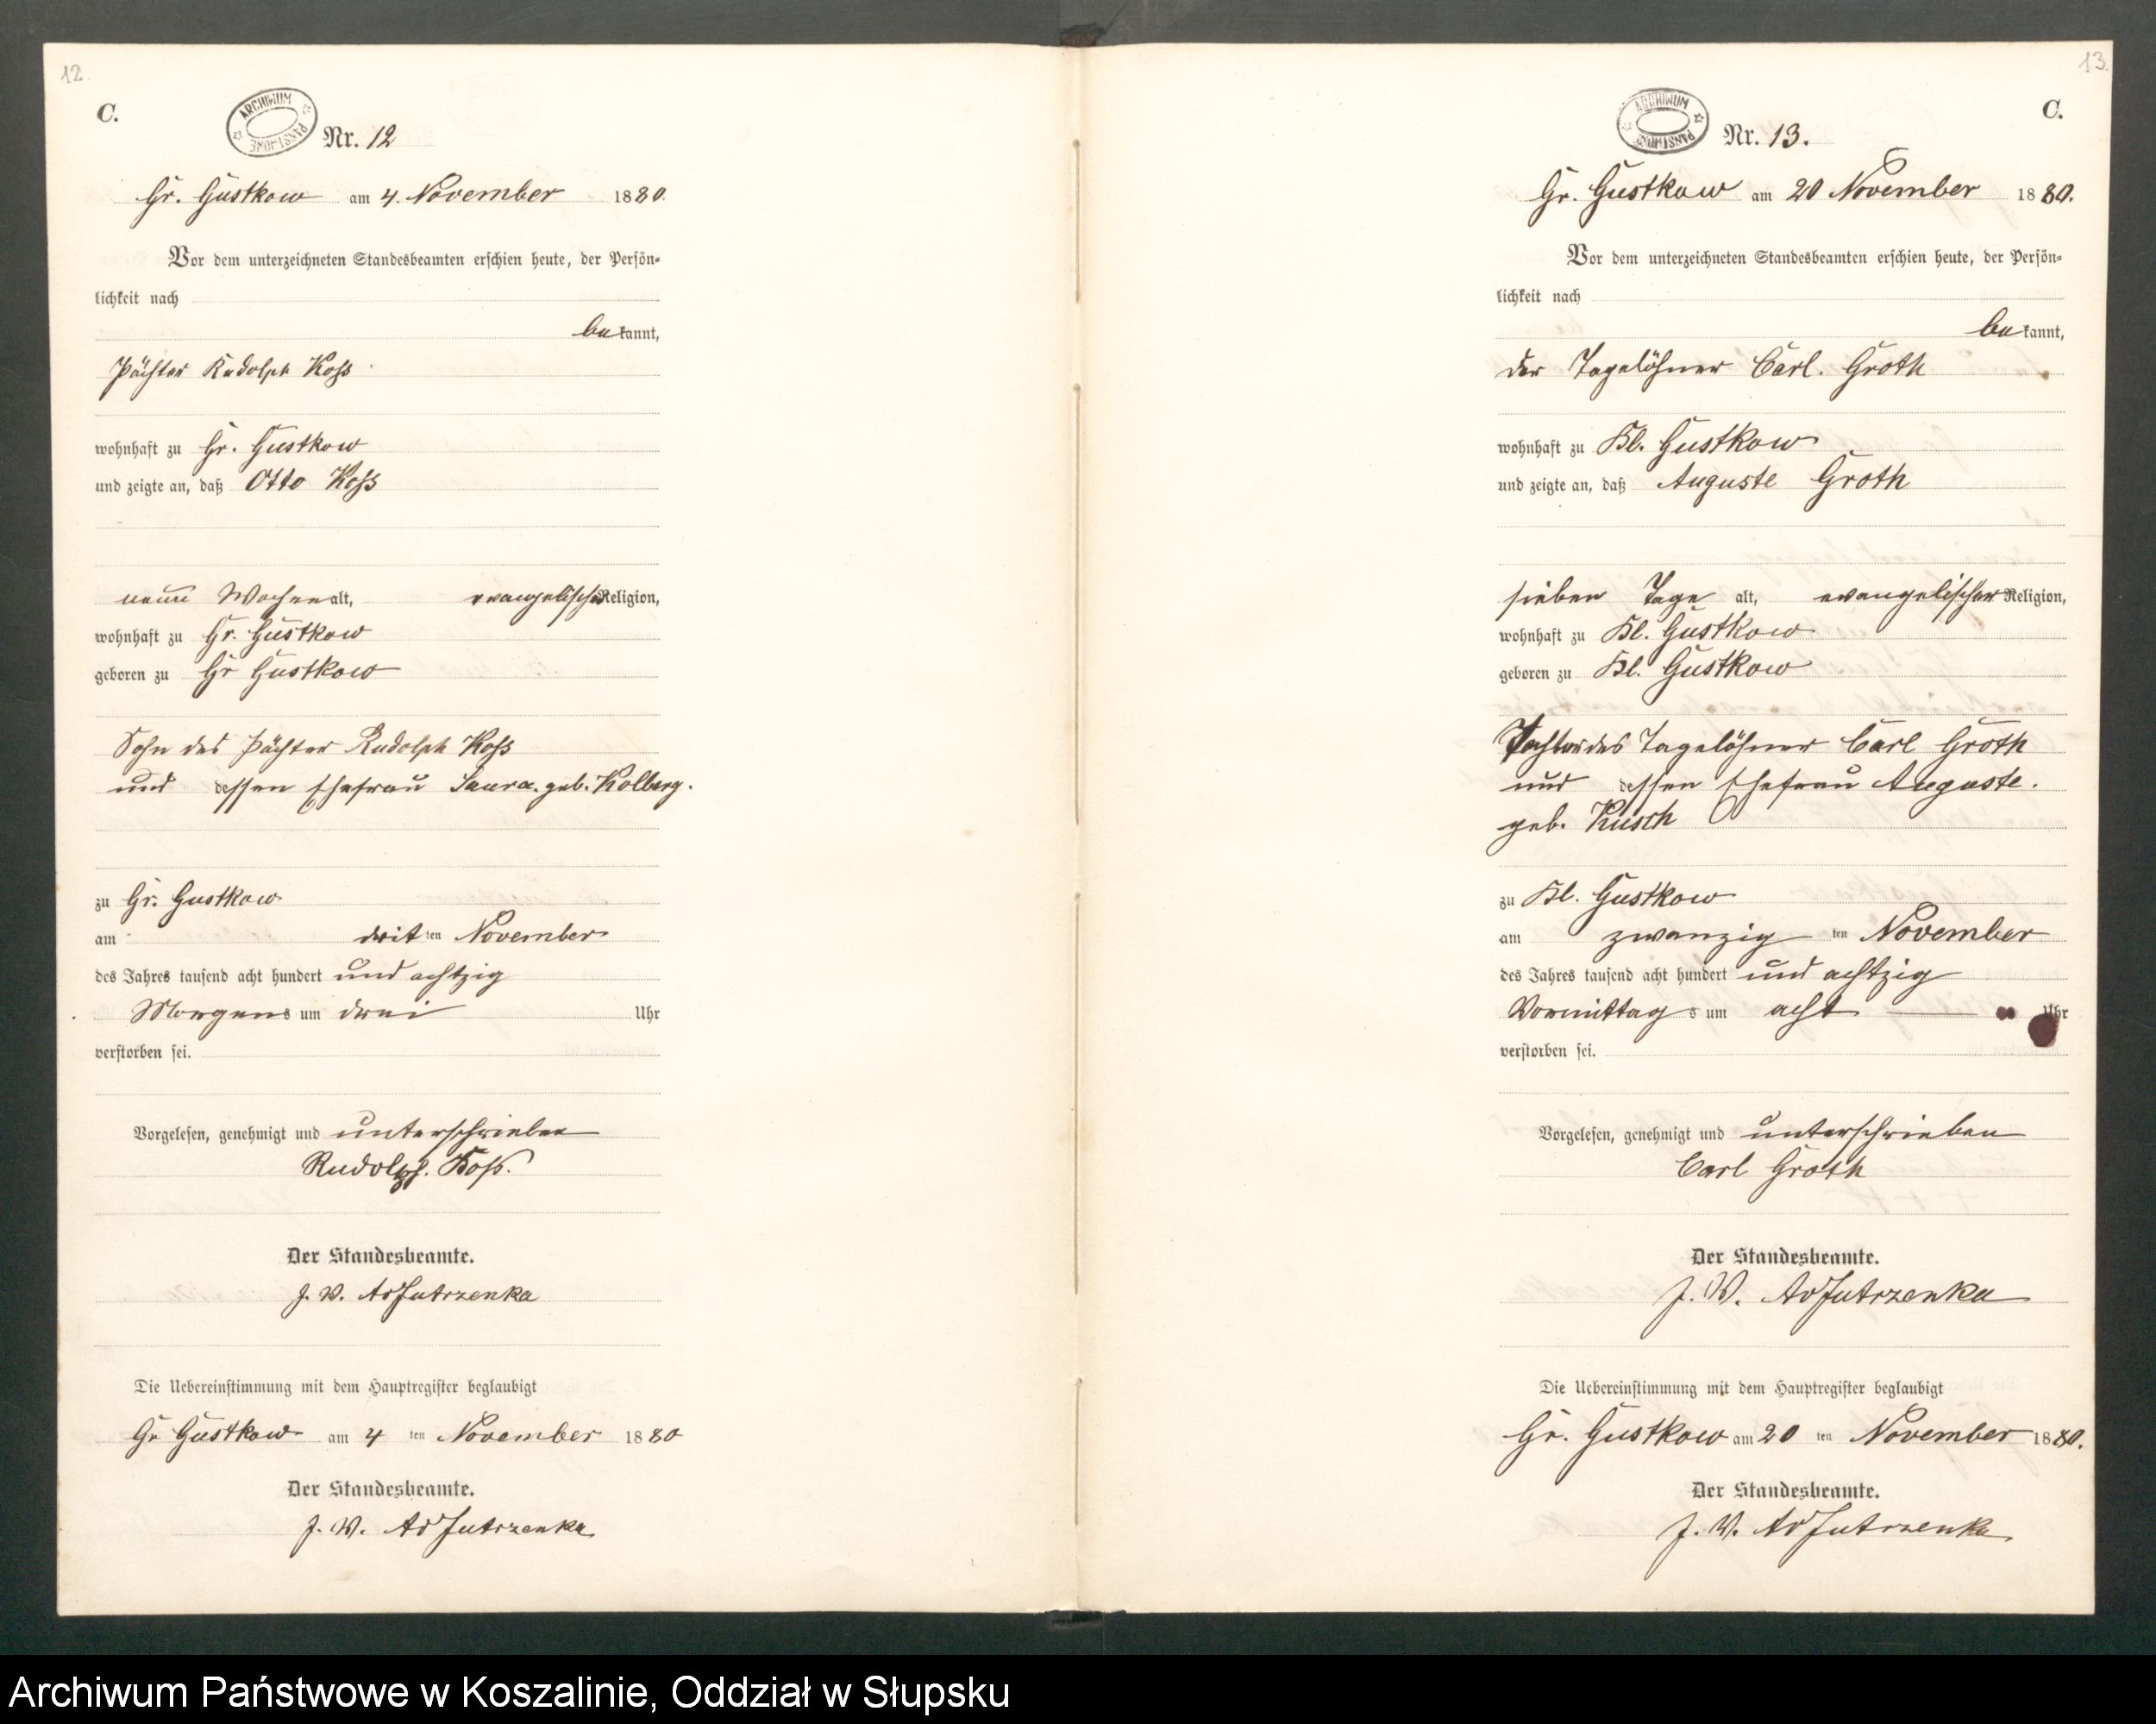 12.
C.
ARCHIWUM PAŃSTWOWE
Nr. 12
Gr. Gustkow am 4. November 1880.
Vor dem unterzeichneten Standesbeamten erschien heute, der Persön-
lichkeit nach
bekannt,
Pächter Rudolph Koss
wohnhaft zu Gr. Gustkow
und zeigte an, daß Otto Koss
neun Wochen alt, evangelischer Religion,
wohnhaft zu Gr. Gustkow
geboren zu Gr Gustkow
Sohn des Pächter Rudolph Koss
und dessen Ehefrau Laura. geb. Kolberg.
zu Gr. Gustkow
am dritten November
des Jahres tausend acht hundert und achtzig
Morgens um drei Uhr
verstorben sei.
Vorgelesen, genehmigt und unterschrieben
Rudolph. Koß.
Der Standesbeamte.
J. W. AdJutrzenka
Die Uebereinstimmung mit dem Hauptregister beglaubigt
Gr Gustkow am 4 ten November 1880
Der Standesbeamte.
J. W. AdJutrzenka
13.
C.
ARCHIWUM PAŃSTWOWE
Nr. 13.
Gr. Gustkow am 20 November 1880.
Vor dem unterzeichneten Standesbeamten erschien heute, der Persön-
lichkeit nach
bekannt,
der Tagelöhner Carl. Groth
wohnhaft zu Kl. Gustkow
und zeigte an, daß Auguste Groth
sieben Tage alt, evangelischer Religion,
wohnhaft zu Kl. Gustkow
geboren zu Kl. Gustkow
Tochter des Tagelöhner Carl Groth
und dessen Ehefrau Auguste.
geb. Kusch
zu Kl. Gustkow
am zwanzig ten November
des Jahres tausend acht hundert und achtzig
Vormittags um acht Uhr
verstorben sei.
Vorgelesen, genehmigt und unterschrieben
Carl Groth
Der Standesbeamte.
J. W. AdJutrzenka
Die Uebereinstimmung mit dem Hauptregister beglaubigt
Gr. Gustkow am 20 ten November 1880.
Der Standesbeamte.
J. W. AdJutrzenka
Archiwum Państwowe w Koszalinie, Oddział w Słupsku